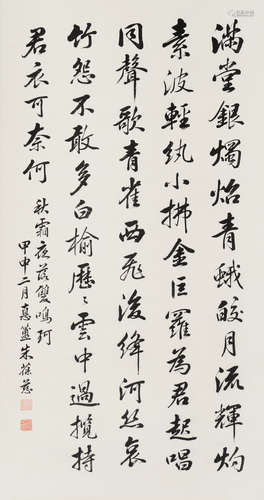 满堂銀燭焰青蛾皎月流輝灼
素波輕紈小拂金巨羅為君起唱
同聲歌青雀西飛後絳河丝哀
竹怨不敢多白榆歷〻雲中過攬持
君衣可奈何
秋霜夜落雙鳴珂
甲申二月